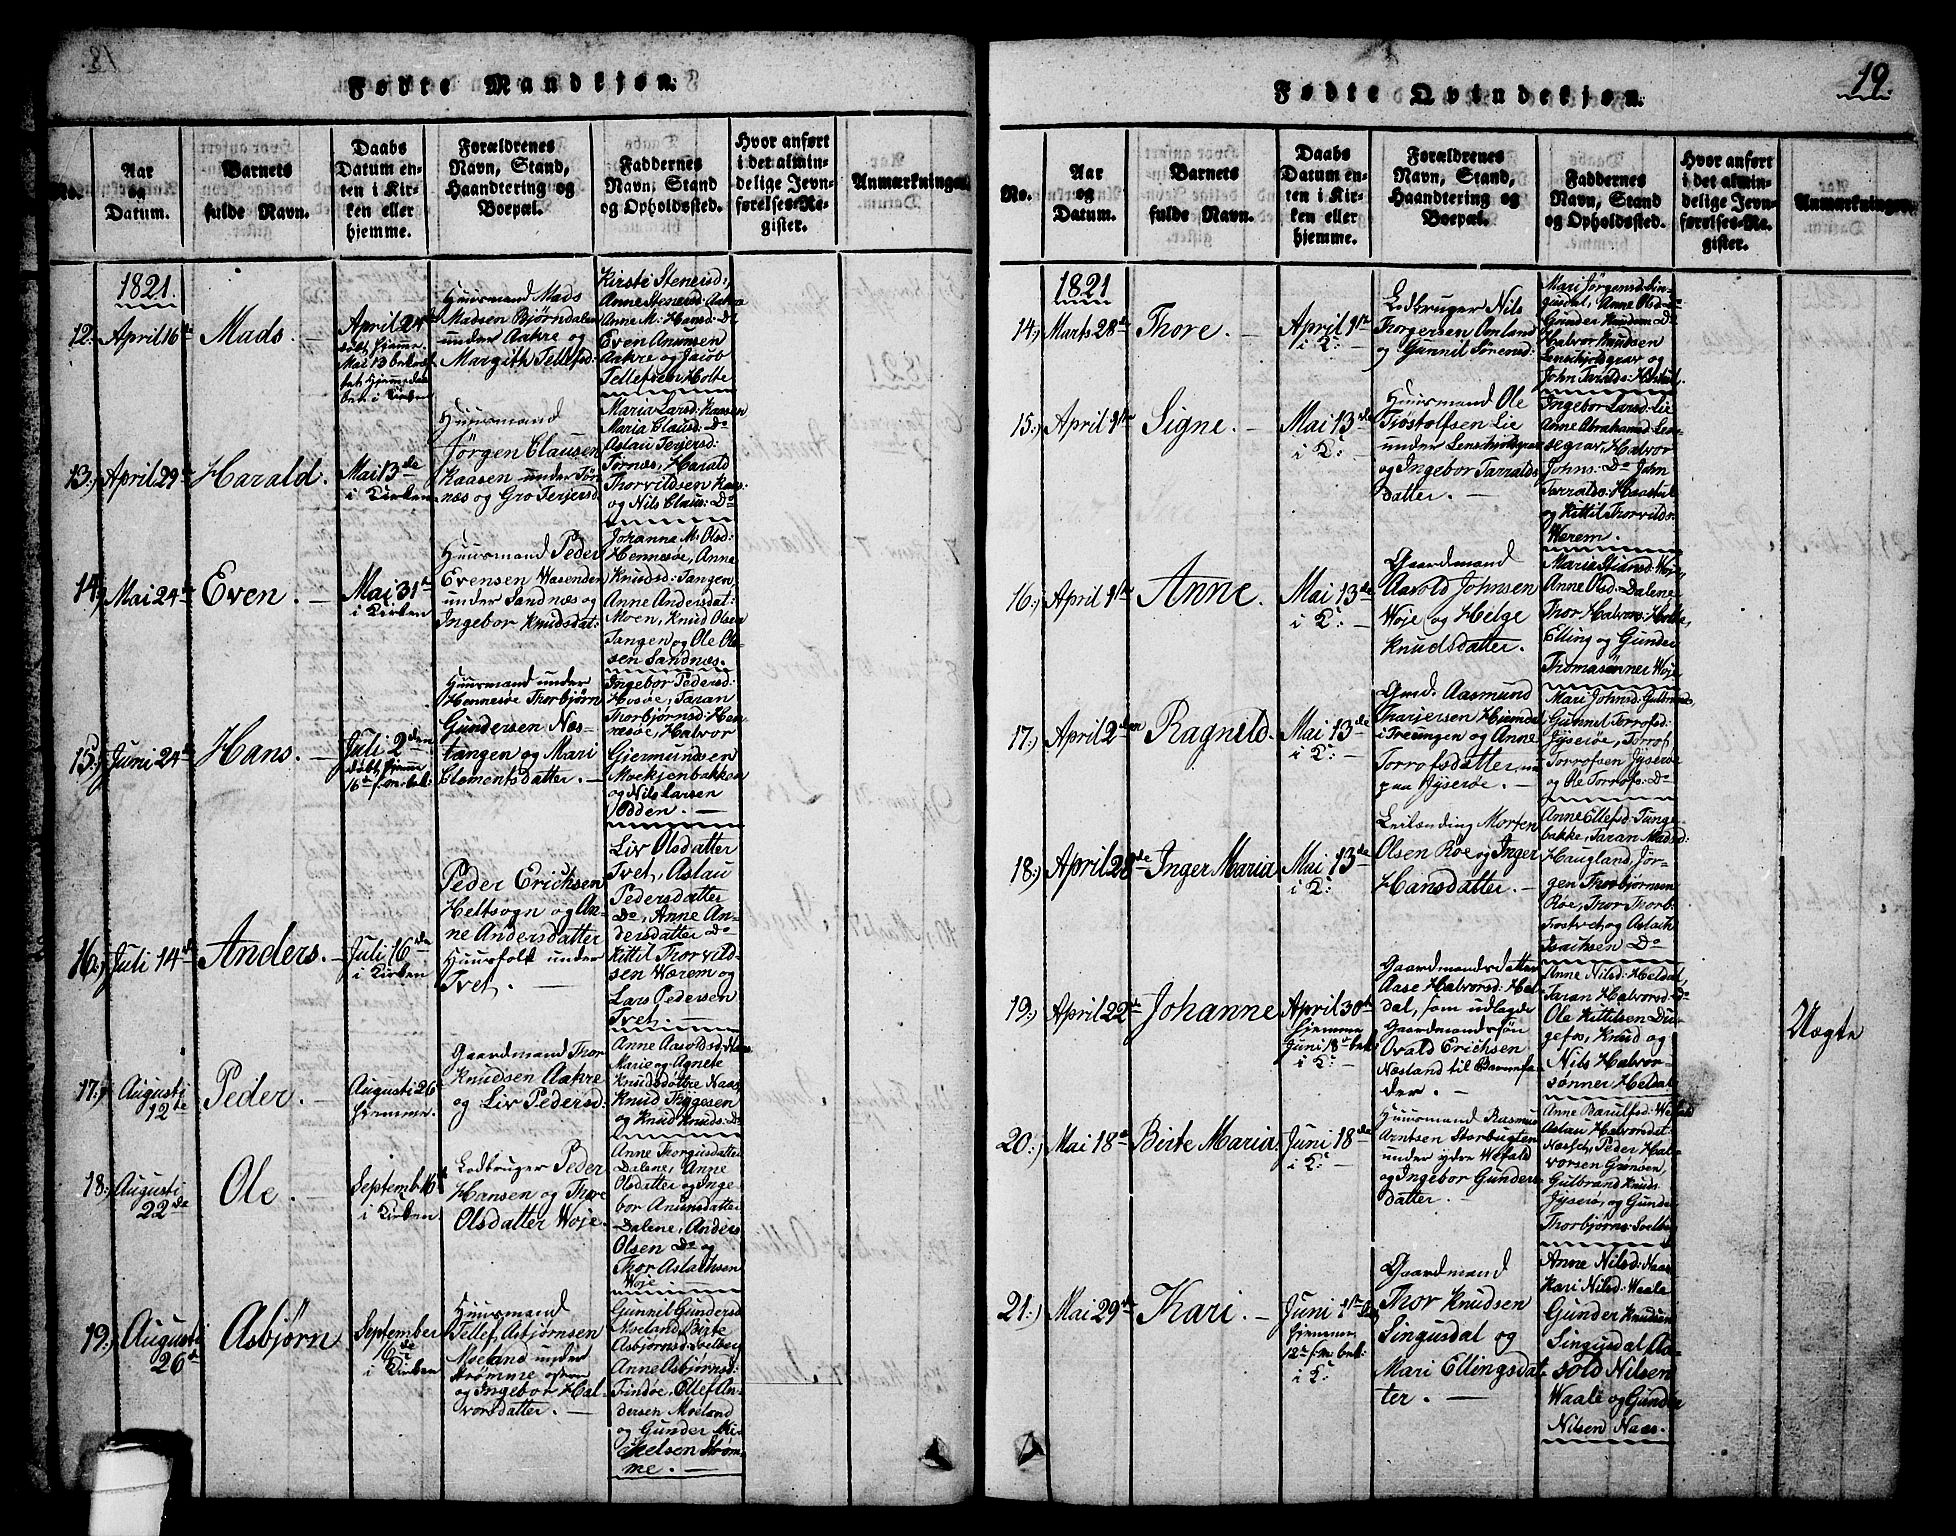 18.
Fødte Mandkjøn.
No.
Aar
og
Datum.
Barnets
fulde Navn.
Daabs
Datum en-
ten i Kir-
ken eller
hjemme.
Forældrenes
Navn, Stand,
Haandtering og
Boepæl.
Faddernes
Navn, Stand
og Opholdssted.
Hvor anført
i det almin-
delige Jevn-
førelses-Re-
gister.
Anmærkninger.
1821
12. April 16de
Mads. —
April 24de
Mai 13
i Kirken
Huusmand Mads
Madsen Bjørndalen
under Aakre og
Margith Tellefsd:
Kirsti Stenersd:,
Anne Stenersd: Aakre
Anne M: Hansd: Do
Even Anunsen
Aakre og Jacob
Tellefsen Holte
13.) April 29de
Harald.
Mai 13de
i Kirken
Huusmand
Jørgen Clausen
Kaasen under Tør-
næs og Gro Terjersd.
Maria Larsd: Kaasen
Maria Clausd: Do
Aslau Terjersd:
Tørnæs, Harald
Thorvildsen Kaas:
og Nils Claus: Do
14.) Mai 24de
Even —
Mai 31te
i Kirken
Huusmand Peder
Evensen Wasenden
under Sandnæs og
Ingebor Knudsdat:
Johanna M: Olsd:
Hennesøe, Anne
Knudsd: Tangen
Anne Andersdat:
Moen, Knud Olsen
Tangen og Ole Ol-
sen Sandnæs.
15.) Juni 24de
Hans. —
Juli 2den
døbt hjemme
16de
Huusmand under
Hennesøe Thorbjørn
Gundersen Næs-
tangen og Mari
Clementsdatter. —
Ingebor Pedersd:
Hosøe, Taran
Thorbjørnsd: Hen-
nesøe, Halvor
Gjermundsen
Moekjenbakken
og Nils Larsen
Odden. —
16.) Juli 14de
Anders. —
Juli 16de
i Kirken
Peder Erichsen
Heltsogn og An-
ne Andersdatter
Huusfolk under
Tvet. —
Liv Olsdatter
Tvet, Aslau
Pedersdatter
Do, Anne An-
dersdatter Do
Kittil Thorvild-
sen Wærem og
Lars Pedersen
Tvet. —
17.) Augusti
12te
Peder. —
Augusti 26
hjemme.
Gaardmand Thor
Knudsen Aakre
og Liv Pedersd:
Anne Aasoldsd: Naas
Marie og Agnete
Knudsdøttre Naas
Knud Thygesen
og Knud Knuds: Do
18.) Augusti
22de
Ole. —
Septemb: 16de
i Kirken
Lodbruger Peder
Hansen og Thore
Olsdatter Woje.
Anne Thorgusdatter
Dalene, Anne
Olsdatter og Inge-
bor Anunsdatter
Dalene, Anders
Olsen Do og
Thor Aslachsen
Woje
19.) Augusti
26de
Asbjørn
September
16de
i Kirken
Huusmand
Tellef Asbjørnsen
Moeland under
Strømme
og Ingebor Hal-
vorsdatter. —
Gunnil Gundersd
Moeland Birte
Asbjørnsd: Svelberg
Anne Asbjørnsd:
Findøe, Ellef An-
dersen Moeland
og Gunder Mi-
chelsen Strøm-
me. —
19.
Fødte Qvindekjøn.
No.
Aar
og
Datum.
Barnets
fulde Navn.
Daabs
Datum en-
ten i Kir-
ken eller
hjemme.
Forældrenes
Navn, Stand,
Haandtering og
Boepæl.
Faddernes
Navn, Stand
og Opholdssted.
Hvor anført
i det almin-
delige Jevn-
førelses-Re-
gister.
Anmærkninger.
1821
14.) Marts 28de
Thore. —
April 1ste
i K: —
Lodbruger Nils
Thorgersen Omland
og Gunnil Sørensd:
Mari Jørgensd: Sin-
gusdal, Anne Olsd: Do
Gunder Knudsen Do
Halvor Knudsen
Lenschjolsgrav og
John Taralds:
15.) April 1ste
Signe. —
Mai 13de
i K: —
Huusmand Ole
Tjøstolfsen Lie
under
og Ingebor Tarralds
datter. —
Ingebor Larsd: Lie
Anne Abrahamsd: Len-
segrav, Halvor
Johns: Do John
Tarralds:
og Kittil Thorvilds:
Wærem.
16.) April 1ste
Anne.
Mai 13de
i K: —
Gaardmand
Aasold Johnsen
Woje og Helge
Knudsdatter.
Marie Stiansd: Woje,
Anne Olsd: Dalene
Thor Halvors: Holte,
Elling og Gunder
Thomasønner Woje
17.) April 2den
Ragnild.
Mai 13de
i K: —
Gmd. Aasmund
Tharjersen
i Treungen og Anne
Torrofsdatter,
paa Jyserøe. —
Mari Johnsd:
Gunnil Torrofsd:
Jyserøe, Torrof
Torrofsen Jyserøe
og Ole Torrofs: Do
18.) April 28de
Inger Maria
Mai 13de
i K: —
Leilending Morten
Olsen Røe og Inger
Hansdatter. —
Anne Ellefsd: Tange-
bakke, Taran Madsd:
Haugland, Jør-
gen Thorbjørnsen
Røe, Thor Thorb:
Trostvet og Aslach
Isachsen Do
19.) April 22de
Johanne
April 30te
hjemme
Juni 18de bek:
i K: —
Gaardmandsdatter
Aase Halvorsd: Hel-
dal, som udlagde
Gaardmandssøn
Ovald Erichsen
Næsland til Barnefa-
der. —
Anne Nilsd: Heldal,
Taran Halvorsd: Do
Ole Kittilsen Du-
gefos, Knud og
Nils Halvor-
sønner Heldal
Uægte
20.) Mai 18de
Birte Maria
Juni 18de
i K:
Huusmand Rasmus
Arntsen Storbugten
under ydre Wefald
og Ingebor Gunders
datter. —
Anne Baruifsd: Wefald
Aslau Halvorsdat:
Næslet, Peder Hal-
vorsen Grønsen,
Gulbrand Knuds
Jyserøe, og Gunder
Thorbjørns: Svelberg
21.) Mai 29de
Kari. —
Juni 1ste
hjemme,
12te
i K:
Gaardmand
Thor Knudsen
Singusdal og
Mari Ellingsdat-
ter. —
Anne Nilsd: Naas
Kari Nilsd: Waale
Gunder Knudsen
Singusdal, Aa-
sold Nilsen
Waale og Gunder
Nilsen Naas.